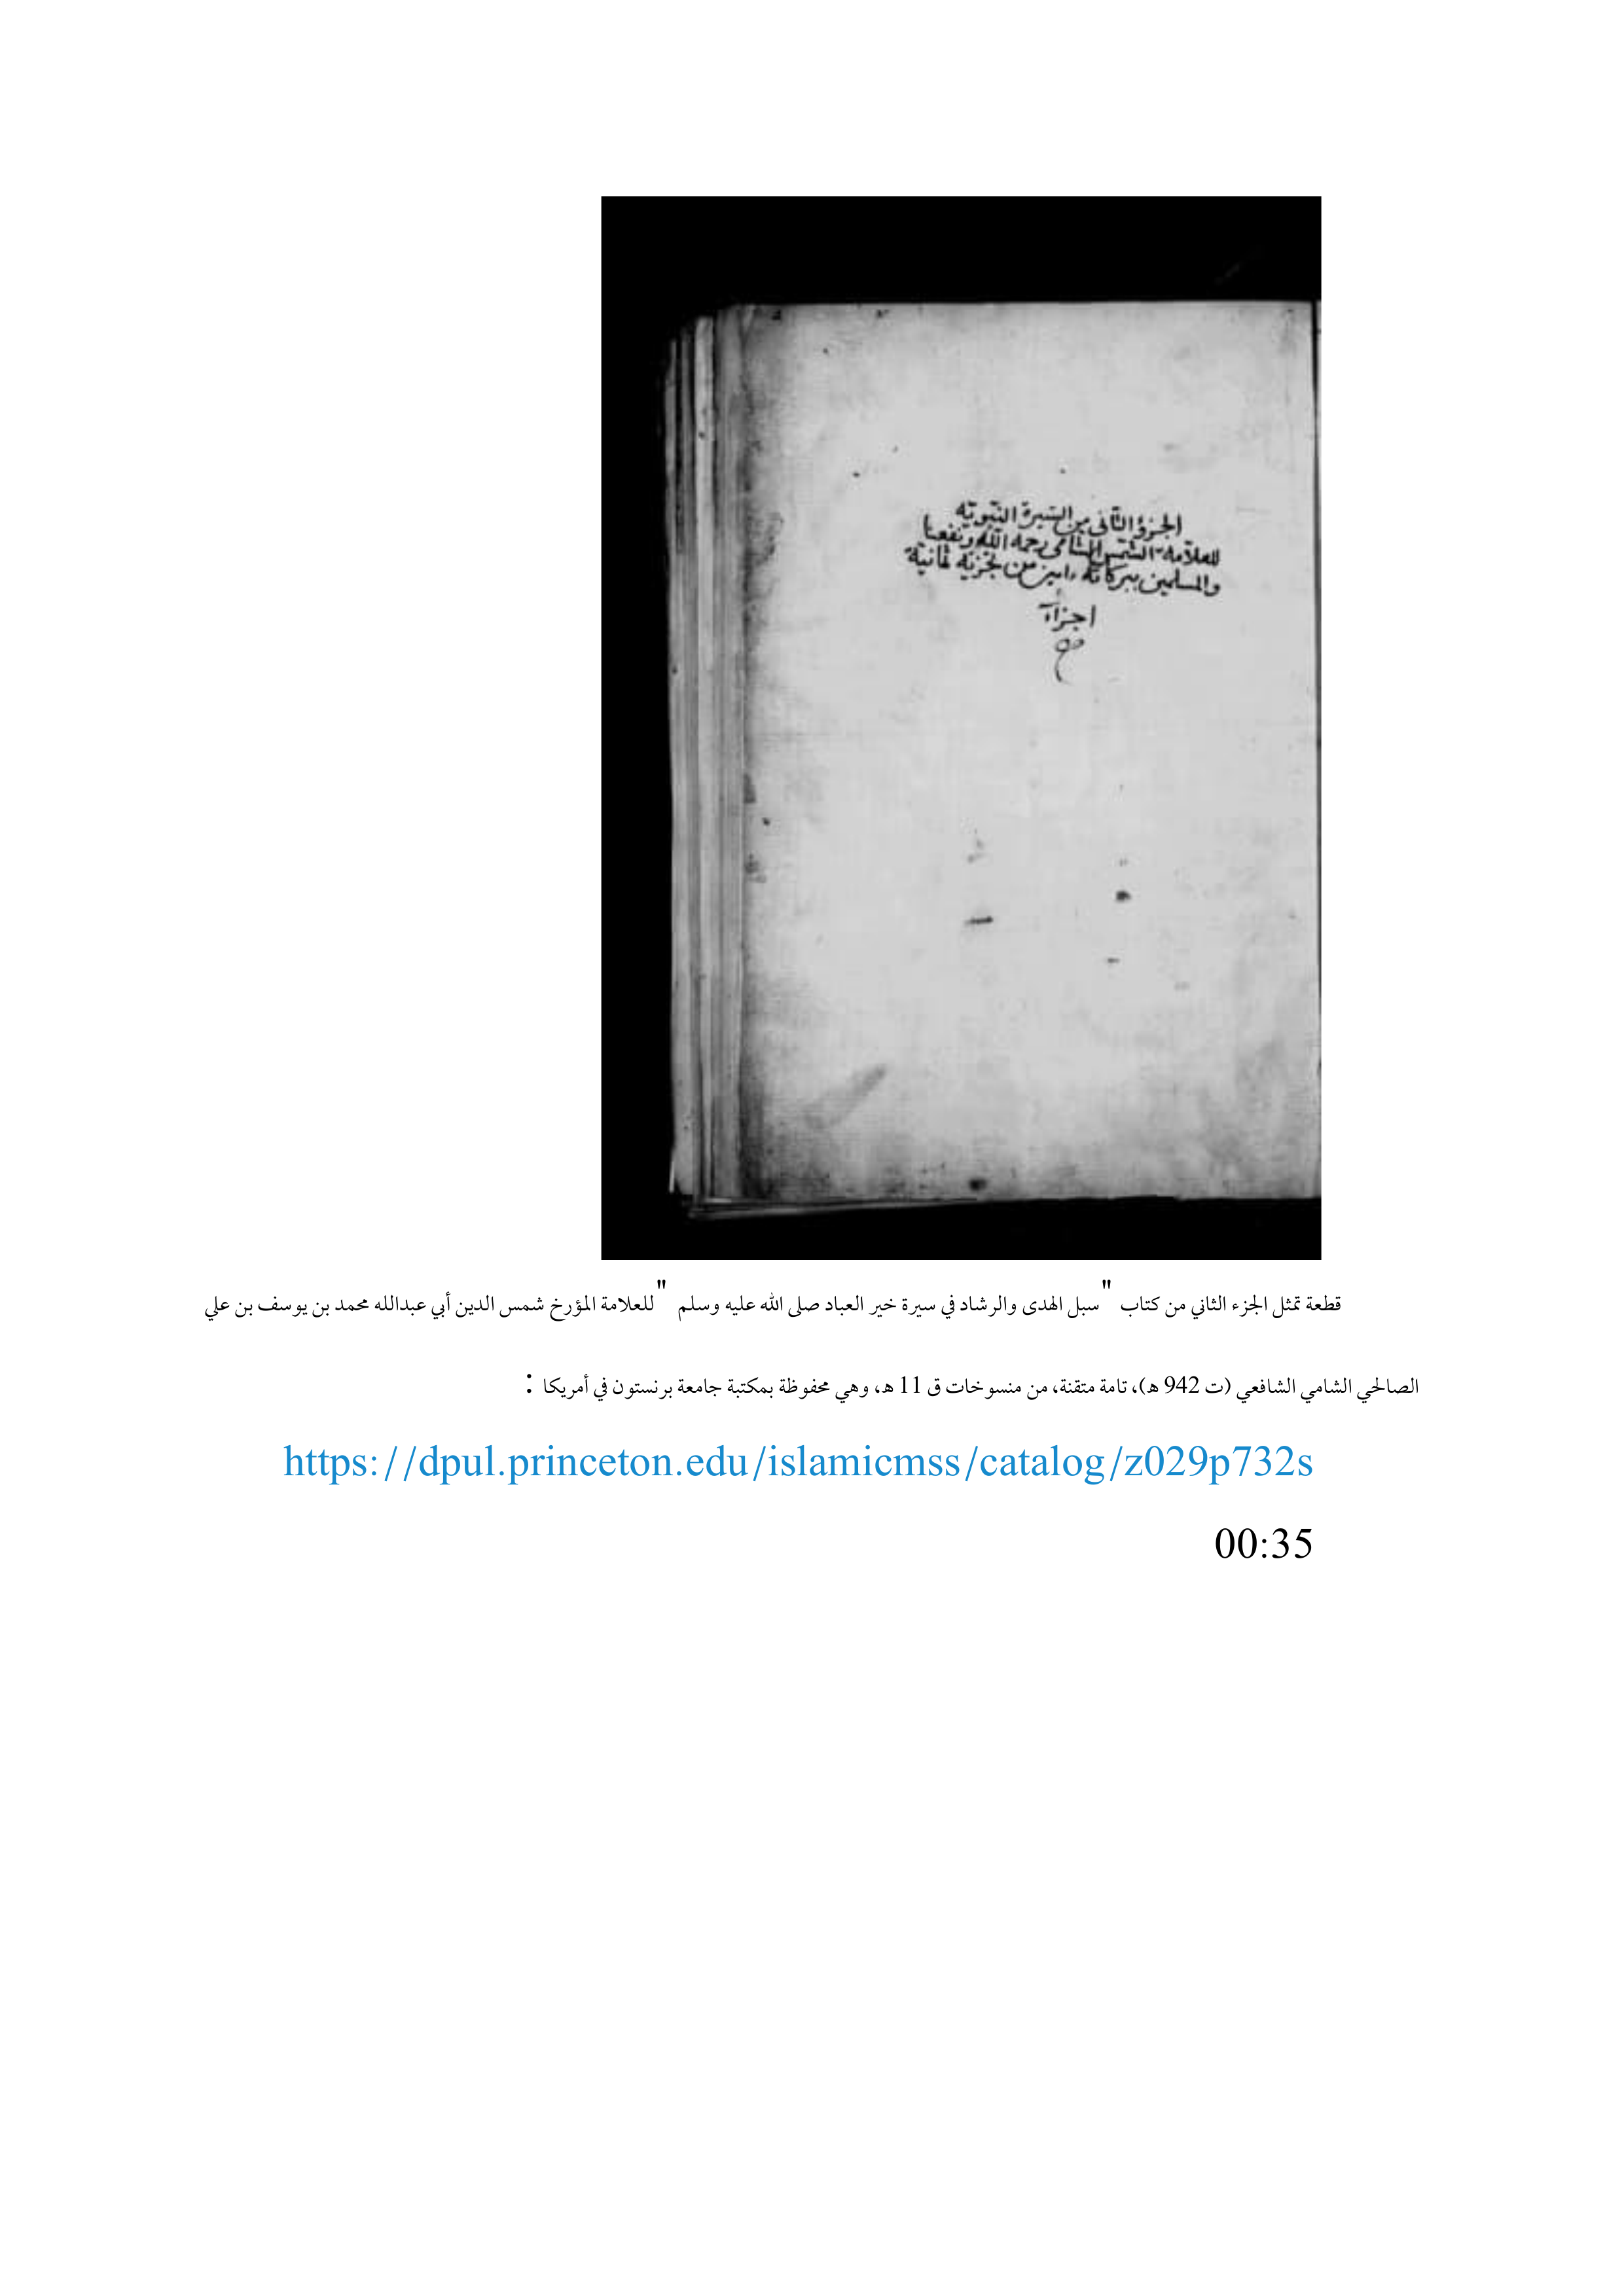 الجزؤ الثانى من السيرة النبويه
للعلامة الشمس الشامى رحمه الله ونفعنا
والمسلمين ببركاته امين من تجزيه ثمانية
اجزاء
قطعة تمثل الجزء الثاني من كتاب "سبل الهدى والرشاد في سيرة خير العباد صلى الله عليه وسلم" للعلامة المؤرخ شمس الدين أبي عبدالله محمد بن يوسف بن علي
الصالحي الشامي الشافعي (ت 942 ه)، تامة متقنة، من منسوخات ق 11 ه، وهي محفوظة بمكتبة جامعة برنستون في أمريكا :
https://dpul.princeton.edu/islamicmss/catalog/z029p732s
00:35